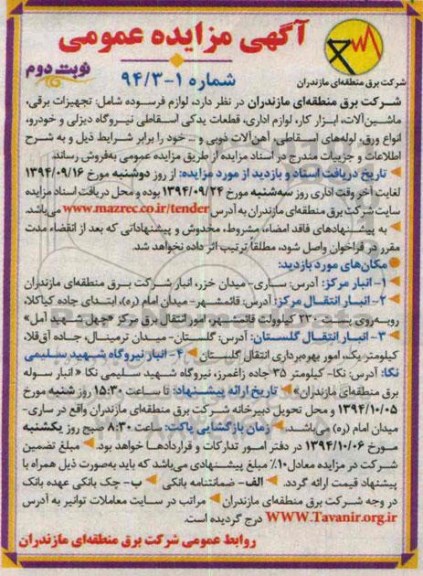 آگهی مزایده عمومی
نوبت دوم
شماره ۱-۹۴/۳
شرکت برق منطقه‌ای مازندران
شرکت برق منطقه‌ای مازندران در نظر دارد، لوازم فرسوده شامل: تجهیزات برقی،
ماشین‌آلات، ابزار کار، لوازم اداری، قطعات یدکی اسقاطی نیروگاه دیزلی و خودرو،
انواع ورق، لوله‌های اسقاطی، آهن‌آلات ذوبی و ... خود را برابر شرایط ذیل و به شرح
اطلاعات و جزییات مندرج در اسناد مزایده از طریق مزایده عمومی به‌فروش رساند.
تاریخ دریافت اسناد و بازدید از مورد مزایده: از روز دوشنبه مورخ ۱۳۹۴/۰۹/۱۶
لغایت آخر وقت اداری روز سه‌شنبه مورخ ۱۳۹۴/۰۹/۲۴ بوده و محل دریافت اسناد مزایده
سایت شرکت برق منطقه‌ای مازندران به آدرس www.mazrec.co.ir/tender می‌باشد.
به پیشنهادهای فاقد امضاء، مشروط، مخدوش و پیشنهاداتی که بعد از انقضاء مدت
مقرر در فراخوان واصل شود، مطلقاً ترتیب اثر داده نخواهد شد.
مکان‌های مورد بازدید:
۱- انبار مرکز: آدرس: ساری- میدان خزر، انبار شرکت برق منطقه‌ای مازندران
۲- انبار انتقال مرکز: آدرس: قائمشهر- میدان امام (ره)، ابتدای جاده کیاکلا،
روبه‌روی پست ۲۳۰ کیلوولت قائمشهر، امور انتقال برق مرکز «چهل شهید آمل»
۳- انبار انتقال گلستان: آدرس: گلستان- میدان ترمینال، جاده آق‌قلا،
کیلومتر یک، امور بهره‌برداری انتقال گلستان ۴- انبار نیروگاه شهید سلیمی
نکا: آدرس: نکا- کیلومتر ۳۵ جاده زاغمرز، نیروگاه شهید سلیمی نکا «انبار سوله
برق منطقه‌ای مازندران» تاریخ ارائه پیشنهاد: تا ساعت ۱۵:۳۰ روز شنبه مورخ
۱۳۹۴/۱۰/۰۵ و محل تحویل دبیرخانه شرکت برق منطقه‌ای مازندران واقع در ساری-
میدان امام (ره) می‌باشد. زمان بازگشایی پاکت: ساعت ۸:۳۰ صبح روز یکشنبه
مورخ ۱۳۹۴/۱۰/۰۶ در دفتر امور تدارکات و قراردادها خواهد بود. مبلغ تضمین
شرکت در مزایده معادل ۱۰٪ مبلغ پیشنهادی می‌باشد که باید به‌صورت ذیل همراه با
پیشنهاد قیمت ارائه گردد. الف- ضمانتنامه بانکی ب- چک بانکی عهده بانک
در وجه شرکت برق منطقه‌ای مازندران مراتب در سایت معاملات توانیر به آدرس
WWW.Tavanir.org.ir درج گردیده است.
روابط عمومی شرکت برق منطقه‌ای مازندران